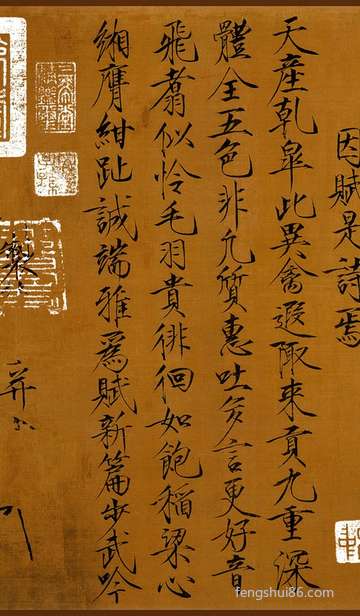 因賦是詩焉
天產乾皐此異禽遐陬來貢九重深
體全五色非凡質惠吐多言更好音
飛翥似怜毛羽貴徘徊如飽稻粱心
緗膺紺趾誠端雅爲賦新篇步武吟
製
fengshui86.com